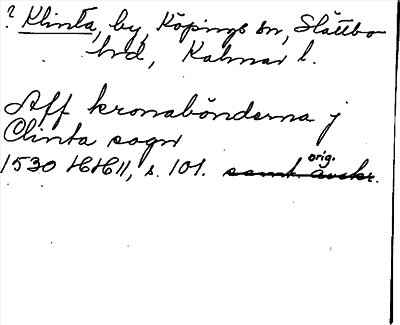 ? Klinta, by, Köpings sn, Slättbo
hd, Kalmar l.
Aff kronabönderna j
Clinta sogn
1530 HH II, s. 101. samt. avskr.
orig.